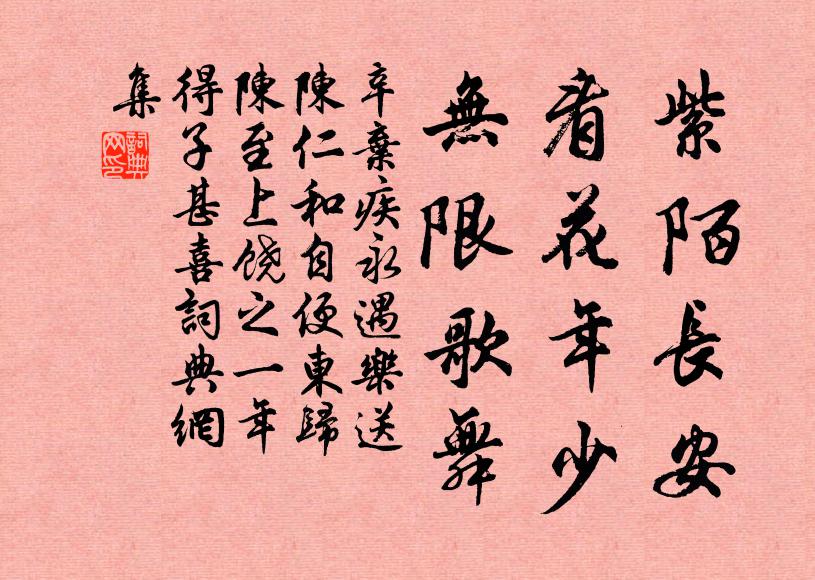 紫陌長安
看花年少
無限歌舞
辛棄疾永遇樂送
陳仁和自便東歸
陳至上饒之一年
得子甚喜詞典網
集
詞典
网印